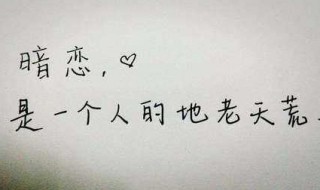 暗恋,♡
是一个人的地老天荒.